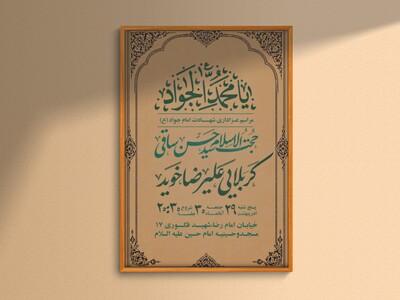 یا محمد الجواد
مراسم عزاداری شهادت امام جواد (ع)
حجت الاسلام سید حسن ساقی
کربلایی علیرضا خوید
پنج شنبه ۲۹ جمعه ۳۰ شروع ۲۰:۳۰
خیابان امام رضا،شهید فکوری ۱۷
مسجد و حسینیه امام حسین علیه السلام